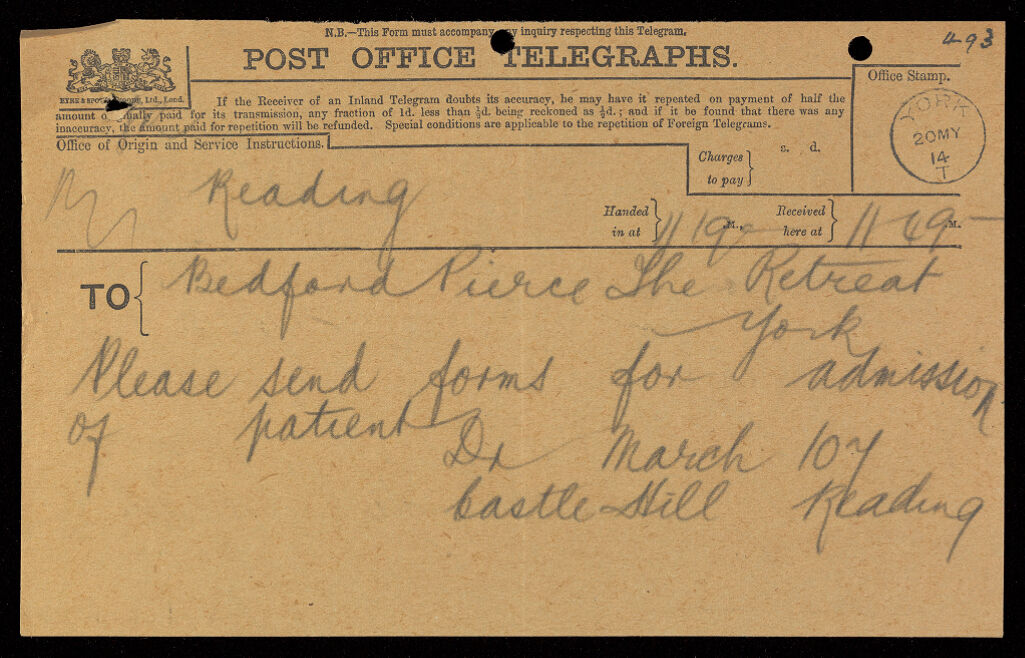 N.B.—This Form must accompany any inquiry respecting this Telegram.
493
POST OFFICE TELEGRAPHS.
Office Stamp.
If the Receiver of an Inland Telegram doubts its accuracy, he may have it repeated on payment of half the
amount originally paid for its transmission, any fraction of 1d. less than ½d. being reckoned as ½d.; and if it be found that there was any
inaccuracy, the amount paid for repetition will be refunded. Special conditions are applicable to the repetition of Foreign Telegrams.
YORK
20 MY
14
T
Office of Origin and Service Instructions.
Charges to pay } s. d.
Reading
Handed in at } 11 19 .M., Received here at } 11 49 .M.
TO { Bedford Pierce The Retreat
York
Please send forms for admission
of patient
Dr March 107
Castle Hill Reading